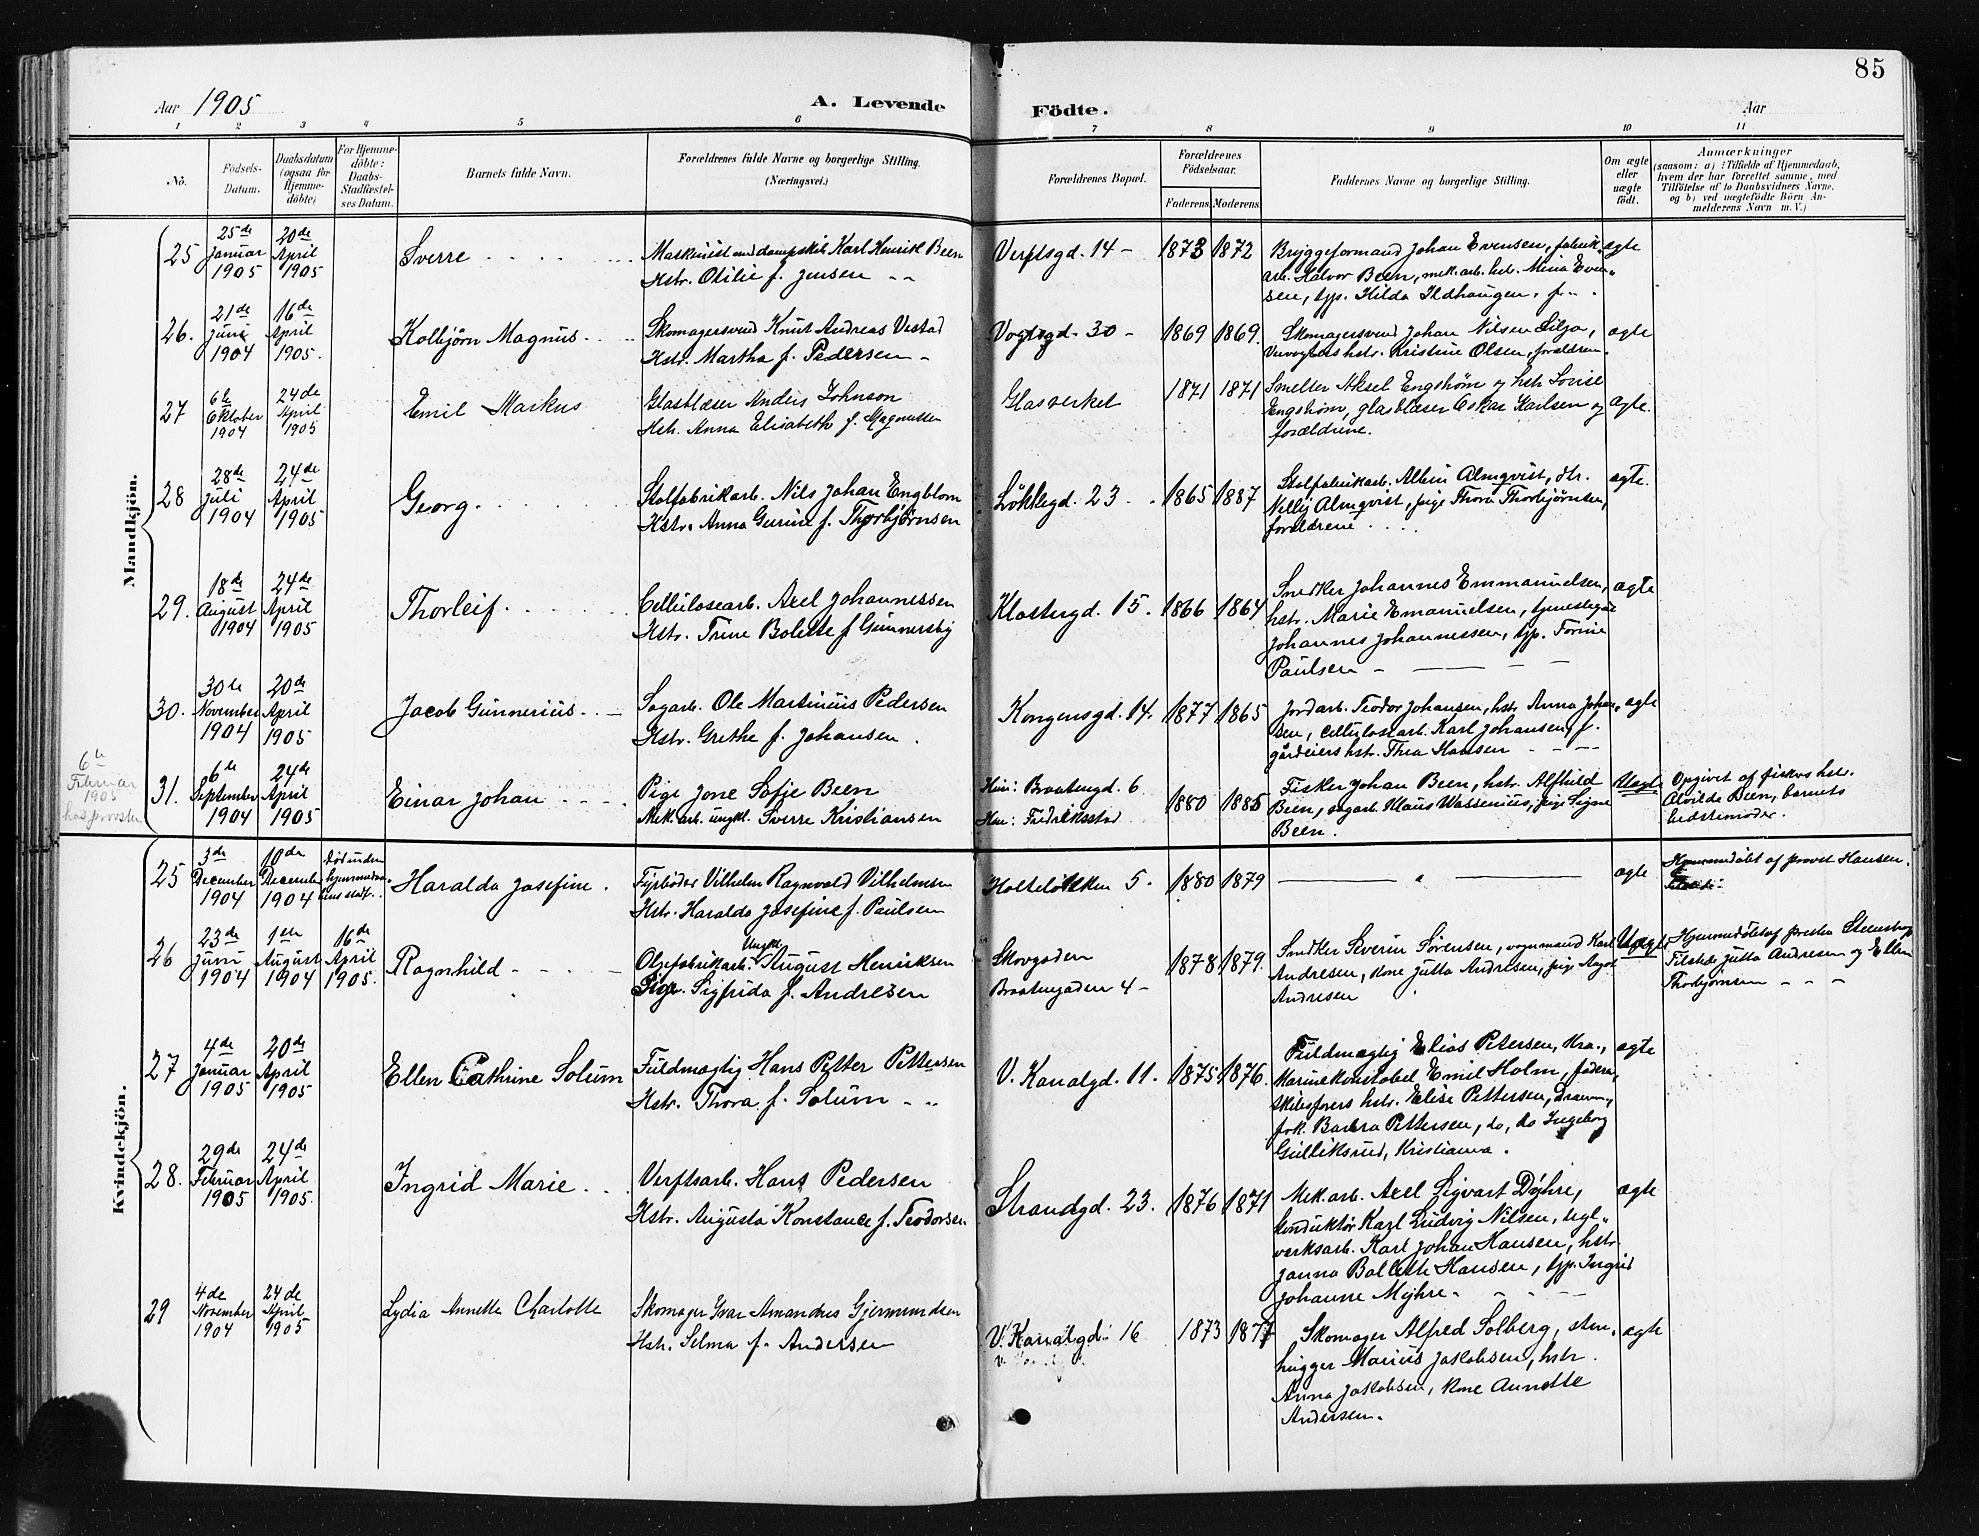 85
Aar 1905
A. Levende
Födte.
Aar
1 2 3 4 5 6 7 8 9 10 11
No.
Födsels-
Datum.
Daabsdatum
(ogsaa for
Hjemme-
döbte)
For Hjemme-
döbte:
Daabs-
Stadfæstel-
ses Datum.
Barnets fulde Navn.
Forældrenes fulde Navne og borgerlige Stilling.
(Næringsvei.)
Forældrenes Bopæl.
Forældrenes
Födselsaar.
Faderens. Moderens.
Faddernes Navne og borgerlige Stilling.
Om ægte
eller
uægte
födt.
Anmærkninger
(saasom: a) : Tilfælde af Hjemmedaab,
hvem der har forrettet samme, med
Tilföielse af to Daabsvidners Navne.
og b) ved uægtefödte Börn An-
melderens Navn m. V.)
Mandkjön.
25
25de
Januar
1905
20de
April
1905
Sverre
Maskinist ved dampskib Karl Henrik Been
Hstr. Otilie f. Jensen
Verftsgd. 14
1873 1872
Bryggeformand Johan Evensen, fabrik-
arb. Halvor Been, mek.arb. hst. Mina Even-
sen, typ. Hilda Ildhaugen, f.
ægte
26.
21de
Juni
1904
16de
April
1905.
Kolbjörn Magnus
Skomagersvend Knut Andreas Vestad
Hstr. Martha f. Pedersen
Vogtsgd. 30
1869 1869.
Skomagersvend Johan Nilsen Lilja,
hstr. Kristine Olsen, forældren.
ægte
27
6te
Oktober
1904
24de
April
1905
Emil Markus
Glasblæser Anders Johnson
Hstr. Anna Elisabeth f. Magnussen
Glasverket
1871 1871
Smelter Aksel Engström og hstr Lovise
Engström, glasblæser Oskar Karlsen og
forældrene.
ægte.
28
28de
Juli
1904
24de
April
1905
Georg
Stolfabrikarb. Nils Johan Engblom
Hstr. Anna Gurine f. Thorbjørnsen
Løkkegd. 23
1865 1887
Stolfabrikarb. Albin Almqvist, htr.
Nelly Almqvist, pige Thora Thorbjørnsen,
forældrene
ægte.
29.
18de
August
1904
24de
April
1905
Thorleif
Cellulosearb. Axel Johannessen
Hstr. Trine Bolette f Gunnersby
Klostergd. 15.
1866 1864
Snedker Johannes Emmanuelsen,
hstr. Marie Emanuelsen, tjenestegut
Johannes Johannessen, typ. Tomine
Paulsen
ægte
30.
30te
November
1904
20de
April
1905
Jacob Gunnerius
Sagarb. Ole Martinius Pedersen
Hstr. Grethe f. Johansen
Kongensgd. 14.
1877 1865
Jordarb. Teodor Johansen, hstr. Anna Johan-
sen, cellulosearb. Karl Johansen, f.
gårdeiers hstr. Thea Hansen
ægte
6te
Februar
1905
hos provsten
31.
6te
September
1904
24de
April
1905
Einar Johan
Pige Jone Sofie Been
Mek.arb. ungkl. Sverre Kristiansen
Hun: Braatengd. 6
Han: Fredriksstad
1880 1885
Fisker Johan Been, hstr. Alfhild
Been, sagarb. Klaus Wassenius, pige Signe
Been.
Uægte
Opgivet af fiskers hstr.
Alvilde Been, barnets
bedstemoder.
Kvindekjön.
25
3de
December
1904
10de
December
1904
Død inden
hjemmedaa-
bens stadf.
Haralda Josefine.
Fyrböder Vilhelm Ragnvald Vilhelmsen
Hstr. Haralda Josefine f. Paulsen
Holteløkken 5.
1880 1879
ægte
Hjemmedøbt af provst Hansen.
26
23de
Juni
1904
1ste
August
1904
16de
April
1905.
Ragnhild
Oljefabrikarb. Ungkl. August Henriksen
Pige. Sigfrida f. Andresen
Skovgaden
Braatengaden 4
1878 1879.
Snedker Severin Sørensen, vognmand Karl
Andresen, kone Jutta Andresen, pige Aagot
Andresen
Uægte
Hjemmedøbt af presten Steenstrup
Tilstede, Jutta Andresen og Ellen
Thorbjørnsen
27
4de
Januar
1905
20de
April
1905
Ellen Cathrine Solum
Fuldmægtig Hans Petter Pettersen
Hstr. Thora f. Solum
V. Kanalgd. 11.
1875 1876.
Fuldmægtig Elias Petersen, Kra.,
Marinekonstabel Emil Holm,
skibsførers hstr. Elise Pettersen, Dram-,
frk. Barbra Pettersen, do, do Ingeborg
Gulliksrud, Kristiania.
ægte
28.
29de
Februar
1905
24de
April
1905.
Ingrid Marie
Verftsarb. Hans Pedersen
Hstr. Augusta Konstance f. Teodorsen
Strandgd. 23.
1876 1871
Mek.arb. Axel Sigvart Dyhre,
konduktör Karl Ludvig Nilsen, tegl-
verksarb. Karl Johan Hansen, hstr.
Janna Bollette Hansen, typ. Ingrid
Johanne Myhre.
ægte
29
4de
November
1904
24de
April
1905
Lydia Annette Charlotte
Skomager Ivar Amandus Gjermundsen
Hstr. Selma f. Andersen
V. Kanalgd. 16
1873 1877
Skomager Alfred Solberg, sten-
hugger Marius Jakobsen, hstr.
Anna Jakobsen, kone Annette
Andersen.
ægte